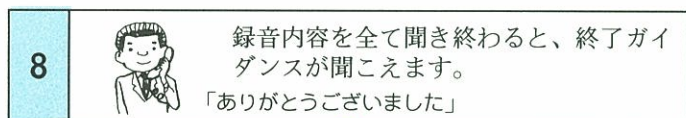 8
録音内容を全て聞き終わると、終了ガイ
ダンスが聞こえます。
「ありがとうございました」